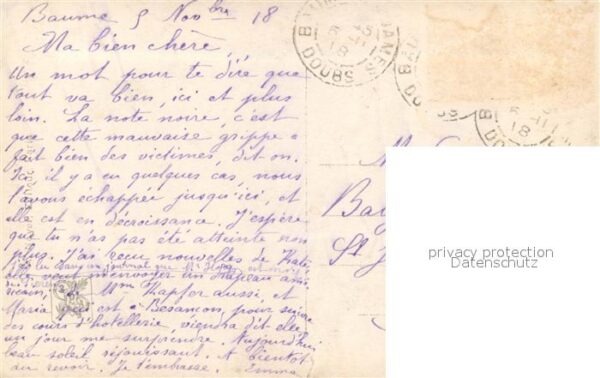 Baume 5 Novbre 18
Ma bien chère,
Un mot pour te dire que
tout va bien, ici et plus
loin. La note noire, c'est
que cette mauvaise grippe a
fait bien des victimes, dit on.
Ici il y a eu quelques cas, nous
l'avons échappée jusqu'ici, et
elle est en décroissance. J'espère
que tu n'as pas été atteinte non
plus. J'ai reçu nouvelles de
journal que Mr est
envoyer un drapeau amé
ricain, Mme Kapfer aussi, et
Maria est à Besançon, pour suivre
des cours d'hotellerie, viendra dit elle
un jour me surprendre. Aujourd'hui
beau soleil réjouissant. A bientôt
au revoir. Je t'embrasse. Emma
DOUBS
18
DOUBS
18
M
Ba
St J
privacy protection
Datenschutz